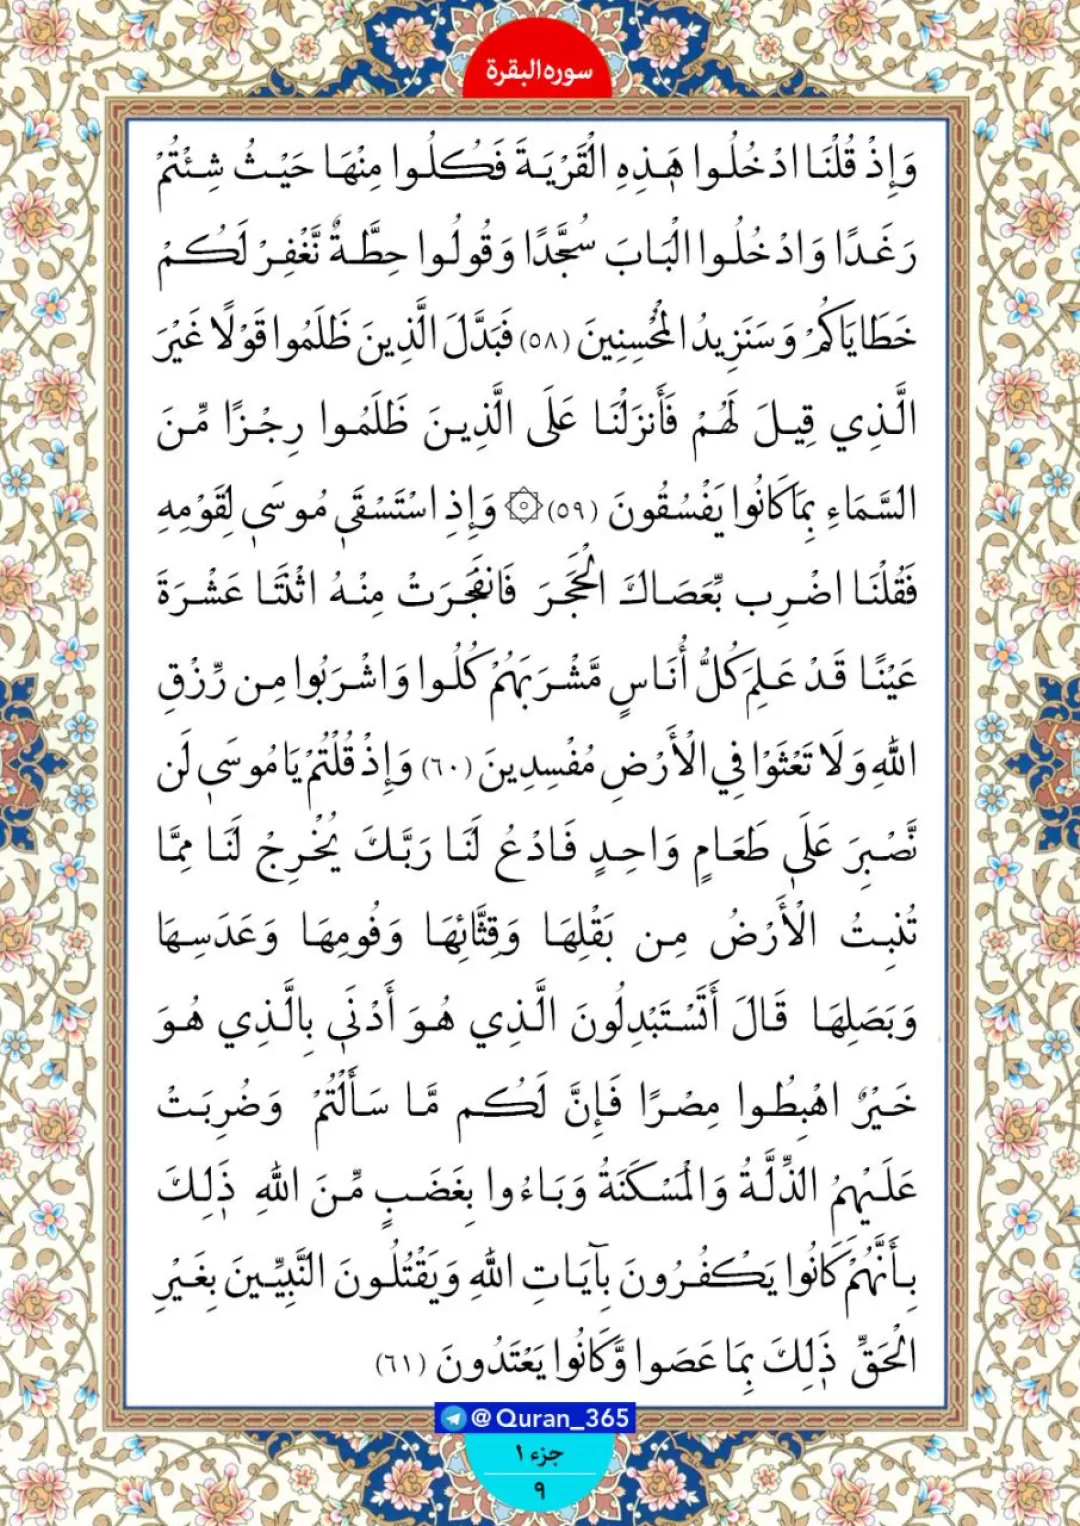 سوره البقرة
وَإِذْ قُلْنَا ادْخُلُوا هَٰذِهِ الْقَرْيَةَ فَكُلُوا مِنْهَا حَيْثُ شِئْتُمْ
رَغَدًا وَادْخُلُوا الْبَابَ سُجَّدًا وَقُولُوا حِطَّةٌ نَّغْفِرْ لَكُمْ
خَطَايَاكُمْ وَسَنَزِيدُ الْمُحْسِنِينَ (٥٨) فَبَدَّلَ الَّذِينَ ظَلَمُوا قَوْلًا غَيْرَ
الَّذِي قِيلَ لَهُمْ فَأَنزَلْنَا عَلَى الَّذِينَ ظَلَمُوا رِجْزًا مِّنَ
السَّمَاءِ بِمَا كَانُوا يَفْسُقُونَ (٥٩) ۞ وَإِذِ اسْتَسْقَىٰ مُوسَىٰ لِقَوْمِهِ
فَقُلْنَا اضْرِب بِّعَصَاكَ الْحَجَرَ فَانفَجَرَتْ مِنْهُ اثْنَتَا عَشْرَةَ
عَيْنًا قَدْ عَلِمَ كُلُّ أُنَاسٍ مَّشْرَبَهُمْ كُلُوا وَاشْرَبُوا مِن رِّزْقِ
اللَّهِ وَلَا تَعْثَوْا فِي الْأَرْضِ مُفْسِدِينَ (٦٠) وَإِذْ قُلْتُمْ يَا مُوسَىٰ لَن
نَّصْبِرَ عَلَىٰ طَعَامٍ وَاحِدٍ فَادْعُ لَنَا رَبَّكَ يُخْرِجْ لَنَا مِمَّا
تُنبِتُ الْأَرْضُ مِن بَقْلِهَا وَقِثَّائِهَا وَفُومِهَا وَعَدَسِهَا
وَبَصَلِهَا قَالَ أَتَسْتَبْدِلُونَ الَّذِي هُوَ أَدْنَىٰ بِالَّذِي هُوَ
خَيْرٌ اهْبِطُوا مِصْرًا فَإِنَّ لَكُم مَّا سَأَلْتُمْ وَضُرِبَتْ
عَلَيْهِمُ الذِّلَّةُ وَالْمَسْكَنَةُ وَبَاءُوا بِغَضَبٍ مِّنَ اللَّهِ ذَٰلِكَ
بِأَنَّهُمْ كَانُوا يَكْفُرُونَ بِآيَاتِ اللَّهِ وَيَقْتُلُونَ النَّبِيِّينَ بِغَيْرِ
الْحَقِّ ذَٰلِكَ بِمَا عَصَوا وَّكَانُوا يَعْتَدُونَ (٦١)
@Quran_365
جزء ١
٩